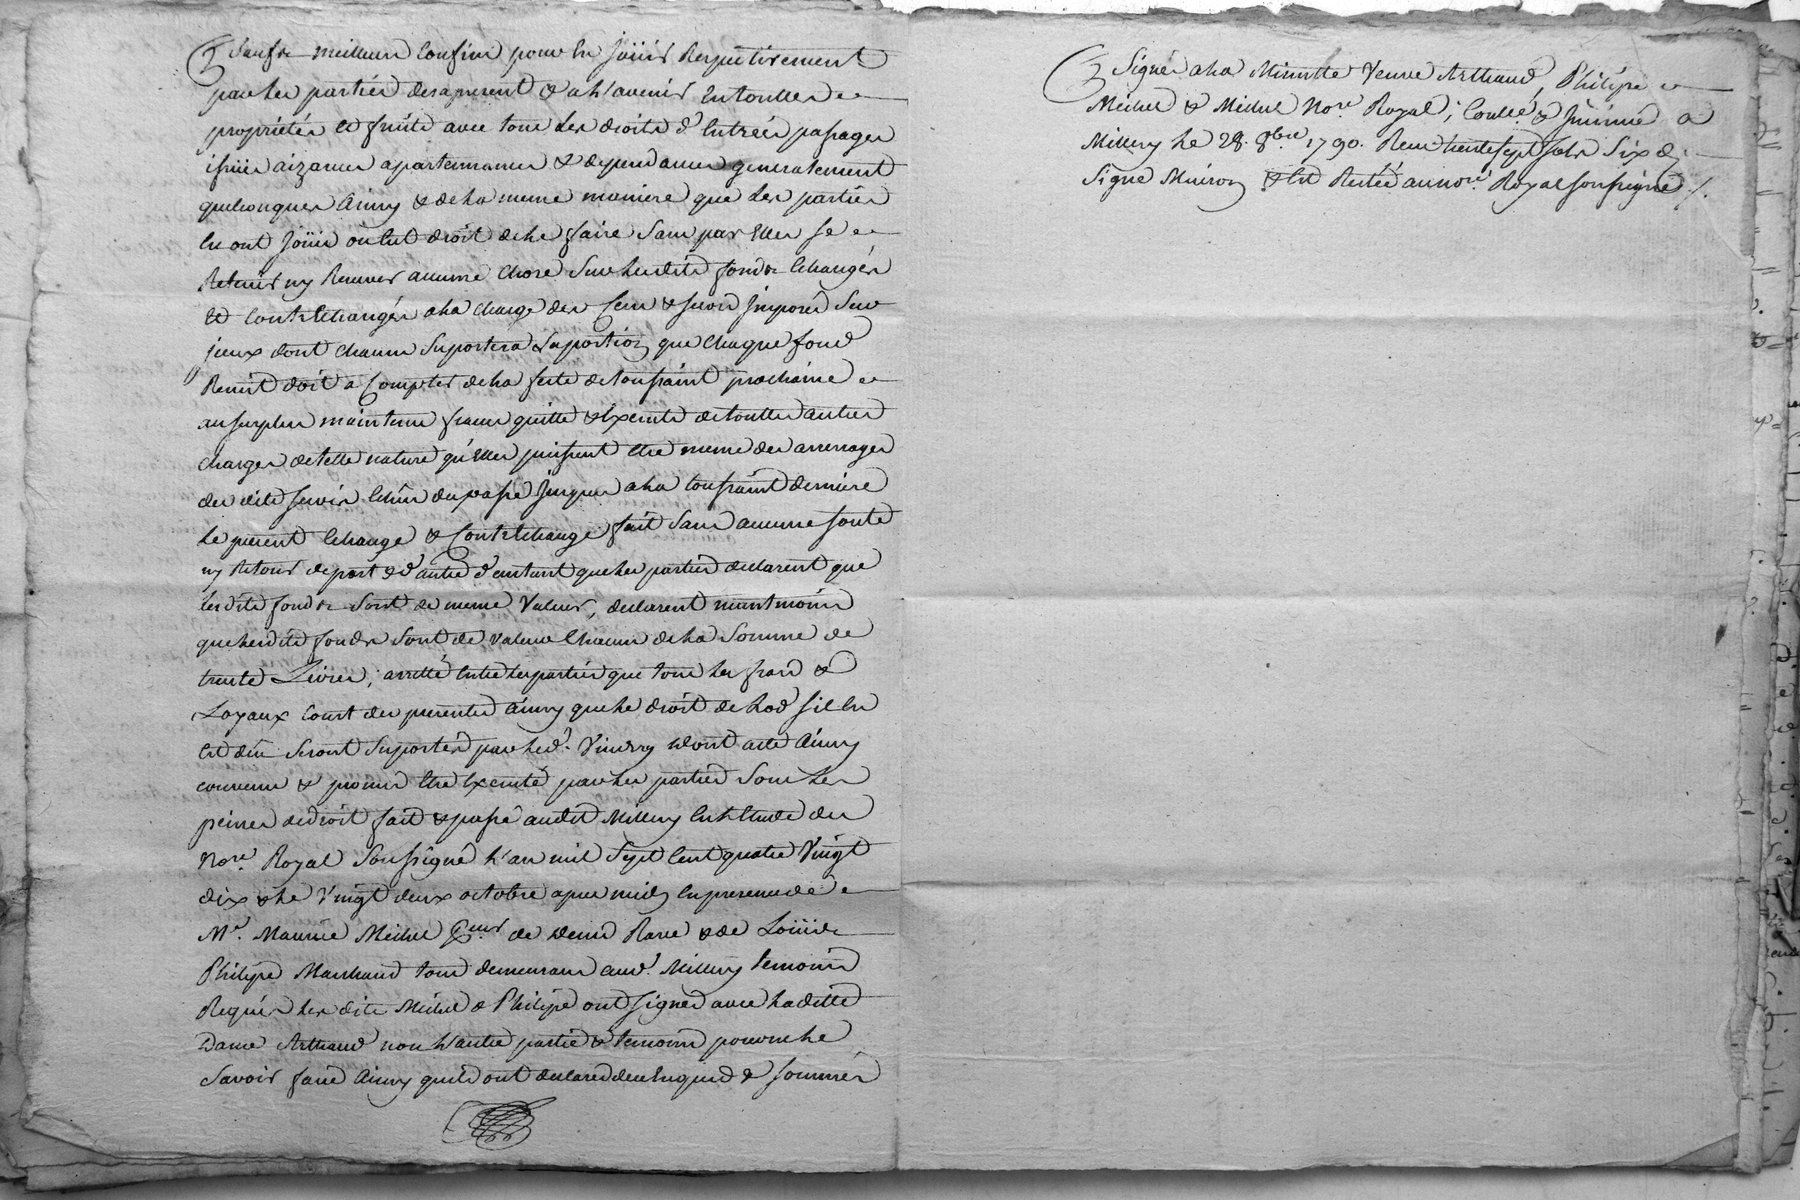 Saufs meilleurs Confins pour En Joüir Respectivement
par les parties des apresent & a L'avenir En touttes
proprietés Et fruits avec tous Les droits d'Entrées passages
issües aizances apartennances & dependances generalement
quelconques Ainsy & de La meme maniere que Les parties
En ont Joüis où Eut droit de Le faire Sans par Elles Se
Retenir ny Reserver aucune Chose Sur Lesdits fonds Echangés
Et Contrechangés a La charge des Cens & servis Jmposés Sur
jceux dont chacun Suportera La portion que Chaque fond
Revist doit a Compter de La feste de toussaint prochaine
au surplus maintenus francs quitte & Exempts de touttes autres
charges de telle nature qu'Elles puissent Etre meme des arrerages
des dits servis Echûs du passé Jusques a La toussaint derniere
Le present Echange & Contrechange fait Sans aucune soute
ny Retour de part & d'autre d'autant que Les parties declarent que
Lesdits fonds Sont de meme Valeur, declarent neantmoins
que Lesdits fonds Sont de valeur Chacun de La Somme de
trente Livres, arretté Entre Les parties que tous Les frais &
Loyaux Couts des presentes Ainsy que Le droit de Lod s'il En
Est dû Seront Suportés par Led. Vindry dont acte Ainsy
convenu & promis Etre Executé par Les parties Sous Les
peines de droit fait & passé audit Millery En L'Etude du
Nore. Royal Soussigné L'an mil Sept Cent quatre Vingt
dix & Le Vingt deux octobre apres midy En presence de
Me. Maurice Michel de Denis Rave & de Loüis
Philipe Marchand tous demeurans aud. Millery temoins
Requis Les dits Michel & Philipe ont signés avec La ditte
Dame Arthaud non L'autre partie & temoin pour ne Le
Savoir faire Ainsy quils ont declarés de ce Enquis & sommés
Signés a La Minutte Veuve Arthaud, Philipe
Michel & Michel Nore. Royal; Contlé. & Jnsinué a
Millery Le 28. 8bre 1790. Reçu trente sept sols Six d.
Signé & Est Restée au nore. Royal soussigné /.